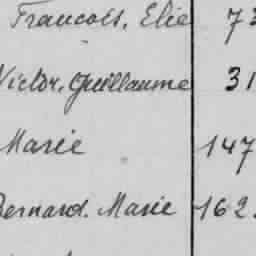 Francois, Elie 73
Victor, Guillaume 31
Marie 147
Bernard. Marie 162.